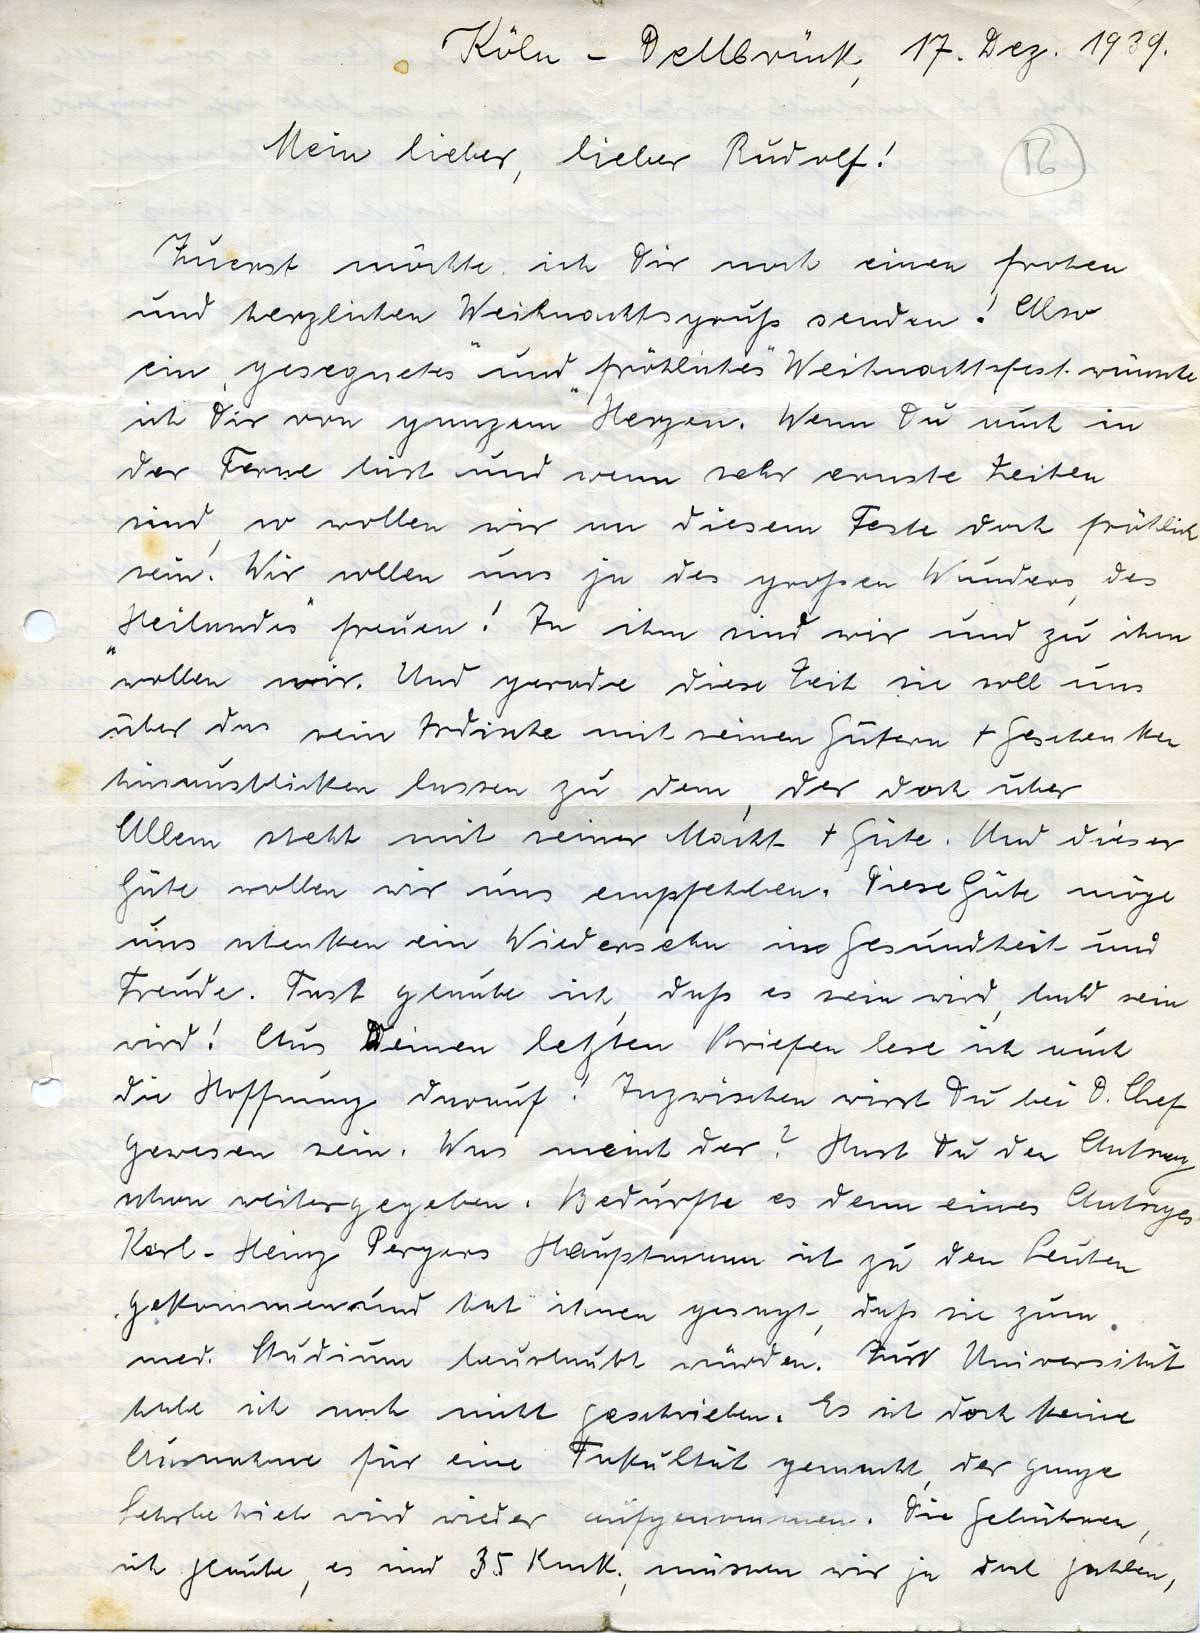 Köln - Dellbrück, 17. Dez. 1939.
Mein lieber, lieber Rudolf!
16
Zuerst möchte ich Dir noch einen frohen
und herzlichen Weihnachtsgruß senden! Also
ein „gesegnetes" und „fröhliches" Weihnachtsfest wünsche
ich Dir von ganzem Herzen. Wenn Du auch in
der Ferne bist und wenn sehr ernste Zeiten
sind, so wollen wir an diesem Feste doch fröhlich
sein! Wir sollen uns ja des großen Wunders, des
„Heilandes" freuen! In ihm sind wir und zu ihm
wollen wir. Und gerade diese Zeit sie soll uns
über das rein Irdische mit seinen Gütern + Geschenken
hinausblicken lassen zu dem, der doch über
Allem steht mit seiner Macht + Güte. Und dieser
Güte wollen wir uns empfehlen. Diese Güte möge
uns schenken ein Wiedersehn in Gesundheit und
Freude. Fast glaube ich, daß es sein wird, bald sein
wird! Aus Deinen letzten Briefen lese ich auch
die Hoffnung darauf! Inzwischen wirst Du bei D. Chef
gewesen sein. Was meint der? Hast Du den Antrag
schon weitergegeben. Bedürfte es denn eines Antrages
Karl-Heinz Pergers Hauptmann ist zu den Leuten
gekommen und hat ihnen gesagt, daß sie zum
med. Studium beurlaubt würden. Zur Universität
habe ich noch nicht geschrieben. Es ist doch keine
Ausnahme für eine Fakultät gemacht, der ganze
Lehrbetrieb wird wieder aufgenommen. Die Gebühren,
ich glaube, es sind 35 RMK., müssen wir ja doch zahlen,